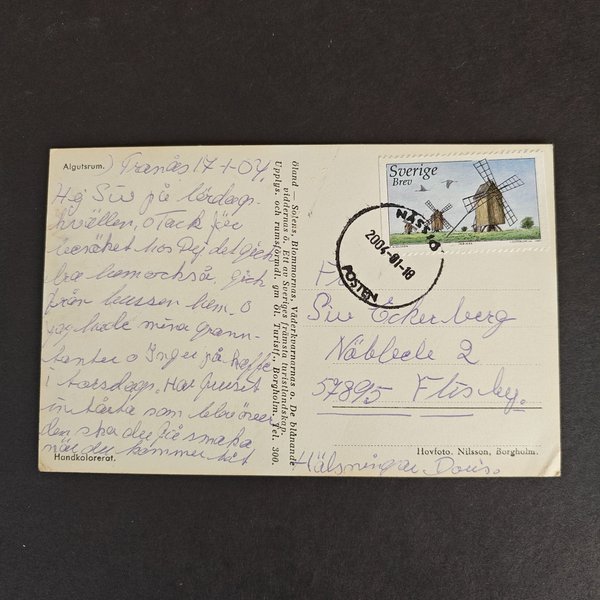 Algutsrum.
Tranås 17 1-04.
Hej Siv på lördags-
kvällen, o Tack för
besöket hos Dej det gick
bra hem också, gick
från bussen hem. o
jag hade mina grann-
tanter o Inger på kaffe
i torsdags. Har fruset
in tårta som blev över
den ska du få smaka
när du kommer hit
Handkolorerat.
Öland — Solens, Blommornas, Väderkvarnarnas o. De blånande
viddernas ö. Ett av Sveriges främsta turistlandskap.
Upplys. och rumsförmdl. gm Öl. Turistf., Borgholm. Tel. 300.
Sverige
Brev
NÄSSJÖ
2004-01-18
POSTEN
Siv Eckerberg
Näbbede 2
57895 Flisby.
Hovfoto. Nilsson, Borgholm.
Hälsningar Doris.